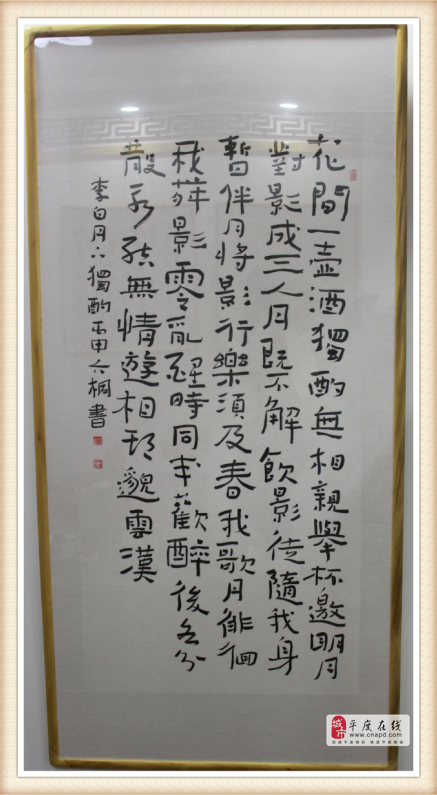 花間一壺酒獨酌無相親舉杯邀明月
對影成三人月既不解飲影徒隨我身
暫伴月將影行樂須及春我歌月徘徊
我舞影零乱醒時同交歡醉後各分
散永結無情遊相期邈雲漢
李白月下獨酌丙申桐書
城市
平度在线
www.cnapd.com